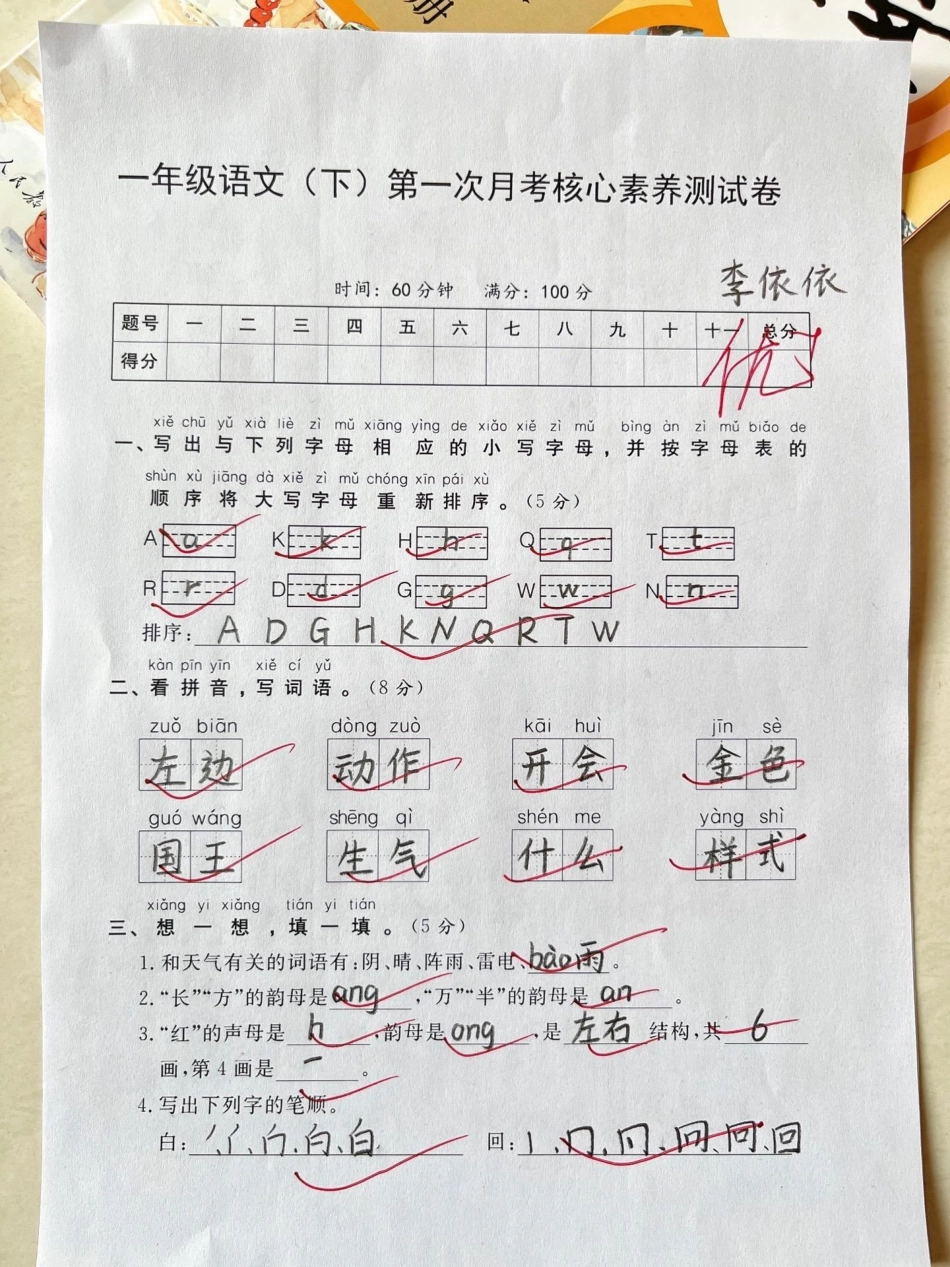 册
人民教
一年级语文（下）第一次月考核心素养测试卷
时间：60分钟 满分：100分
李依依
题号 一 二 三 四 五 六 七 八 九 十 十一 总分
得分
优
xiě chū yǔ xià liè zì mǔ xiāng yìng de xiǎo xiě zì mǔ bìng àn zì mǔ biǎo de
一、写出与下列字母相应的小写字母，并按字母表的
shùn xù jiāng dà xiě zì mǔ chóng xīn pái xù
顺序将大写字母重新排序。（5分）
A a K k H h Q q T t
R r D d G g W w N n
排序：A D G H K N Q R T W
kàn pīn yīn xiě cí yǔ
二、看拼音，写词语。（8分）
zuǒ biān dòng zuò kāi huì jīn sè
左边 动作 开会 金色
guó wáng shēng qì shén me yàng shì
国王 生气 什么 样式
xiǎng yi xiǎng tián yi tián
三、想一想，填一填。（5分）
1. 和天气有关的词语有：阴、晴、阵雨、雷电、bào雨。
2. “长”“方”的韵母是 ang ，“万”“半”的韵母是 an 。
3. “红”的声母是 h ，韵母是 ong ，是 左右 结构，共 6
画，第4画是 一 。
4. 写出下列字的笔顺。
白： 白、白 回： 丨、冂、回、回